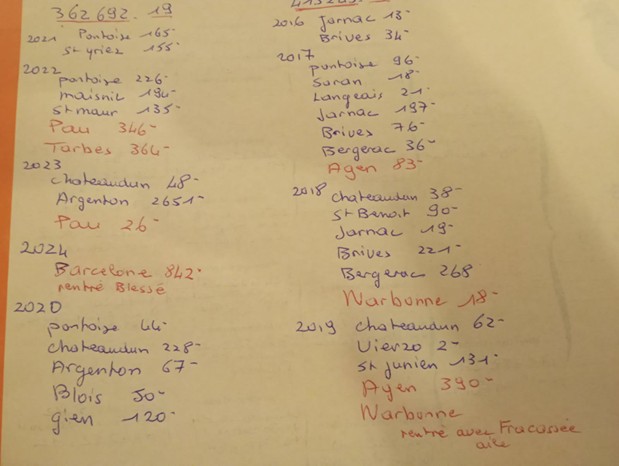 362692.19
2021 Pontoise 165-
St yriez 155-
2022
pontoise 226-
maisnil 194-
St maur 135-
Pau 346-
Tarbes 364-
2023
chateaudun 48-
Argenton 2651-
Pau 26-
2024
Barcelone 842-
rentré Blessé
2020
pontoise 44-
chateaudun 228-
Argenton 67-
Blois 50-
gien 120-
2016 Jarnac 13-
Brives 34-
2017
pontoise 96-
Saran 18-
Langeais 21-
Jarnac 197-
Brives 76-
Bergerac 36-
Agen 83-
2018 chateaudun 38-
St Benoit 90-
Jarnac 19-
Brives 221-
Bergerac 268
Narbonne 18-
2019 chateaudun 62-
Vierzo 2-
St junien 131-
Agen 390-
Narbonne
rentré avec Fracassée
aile